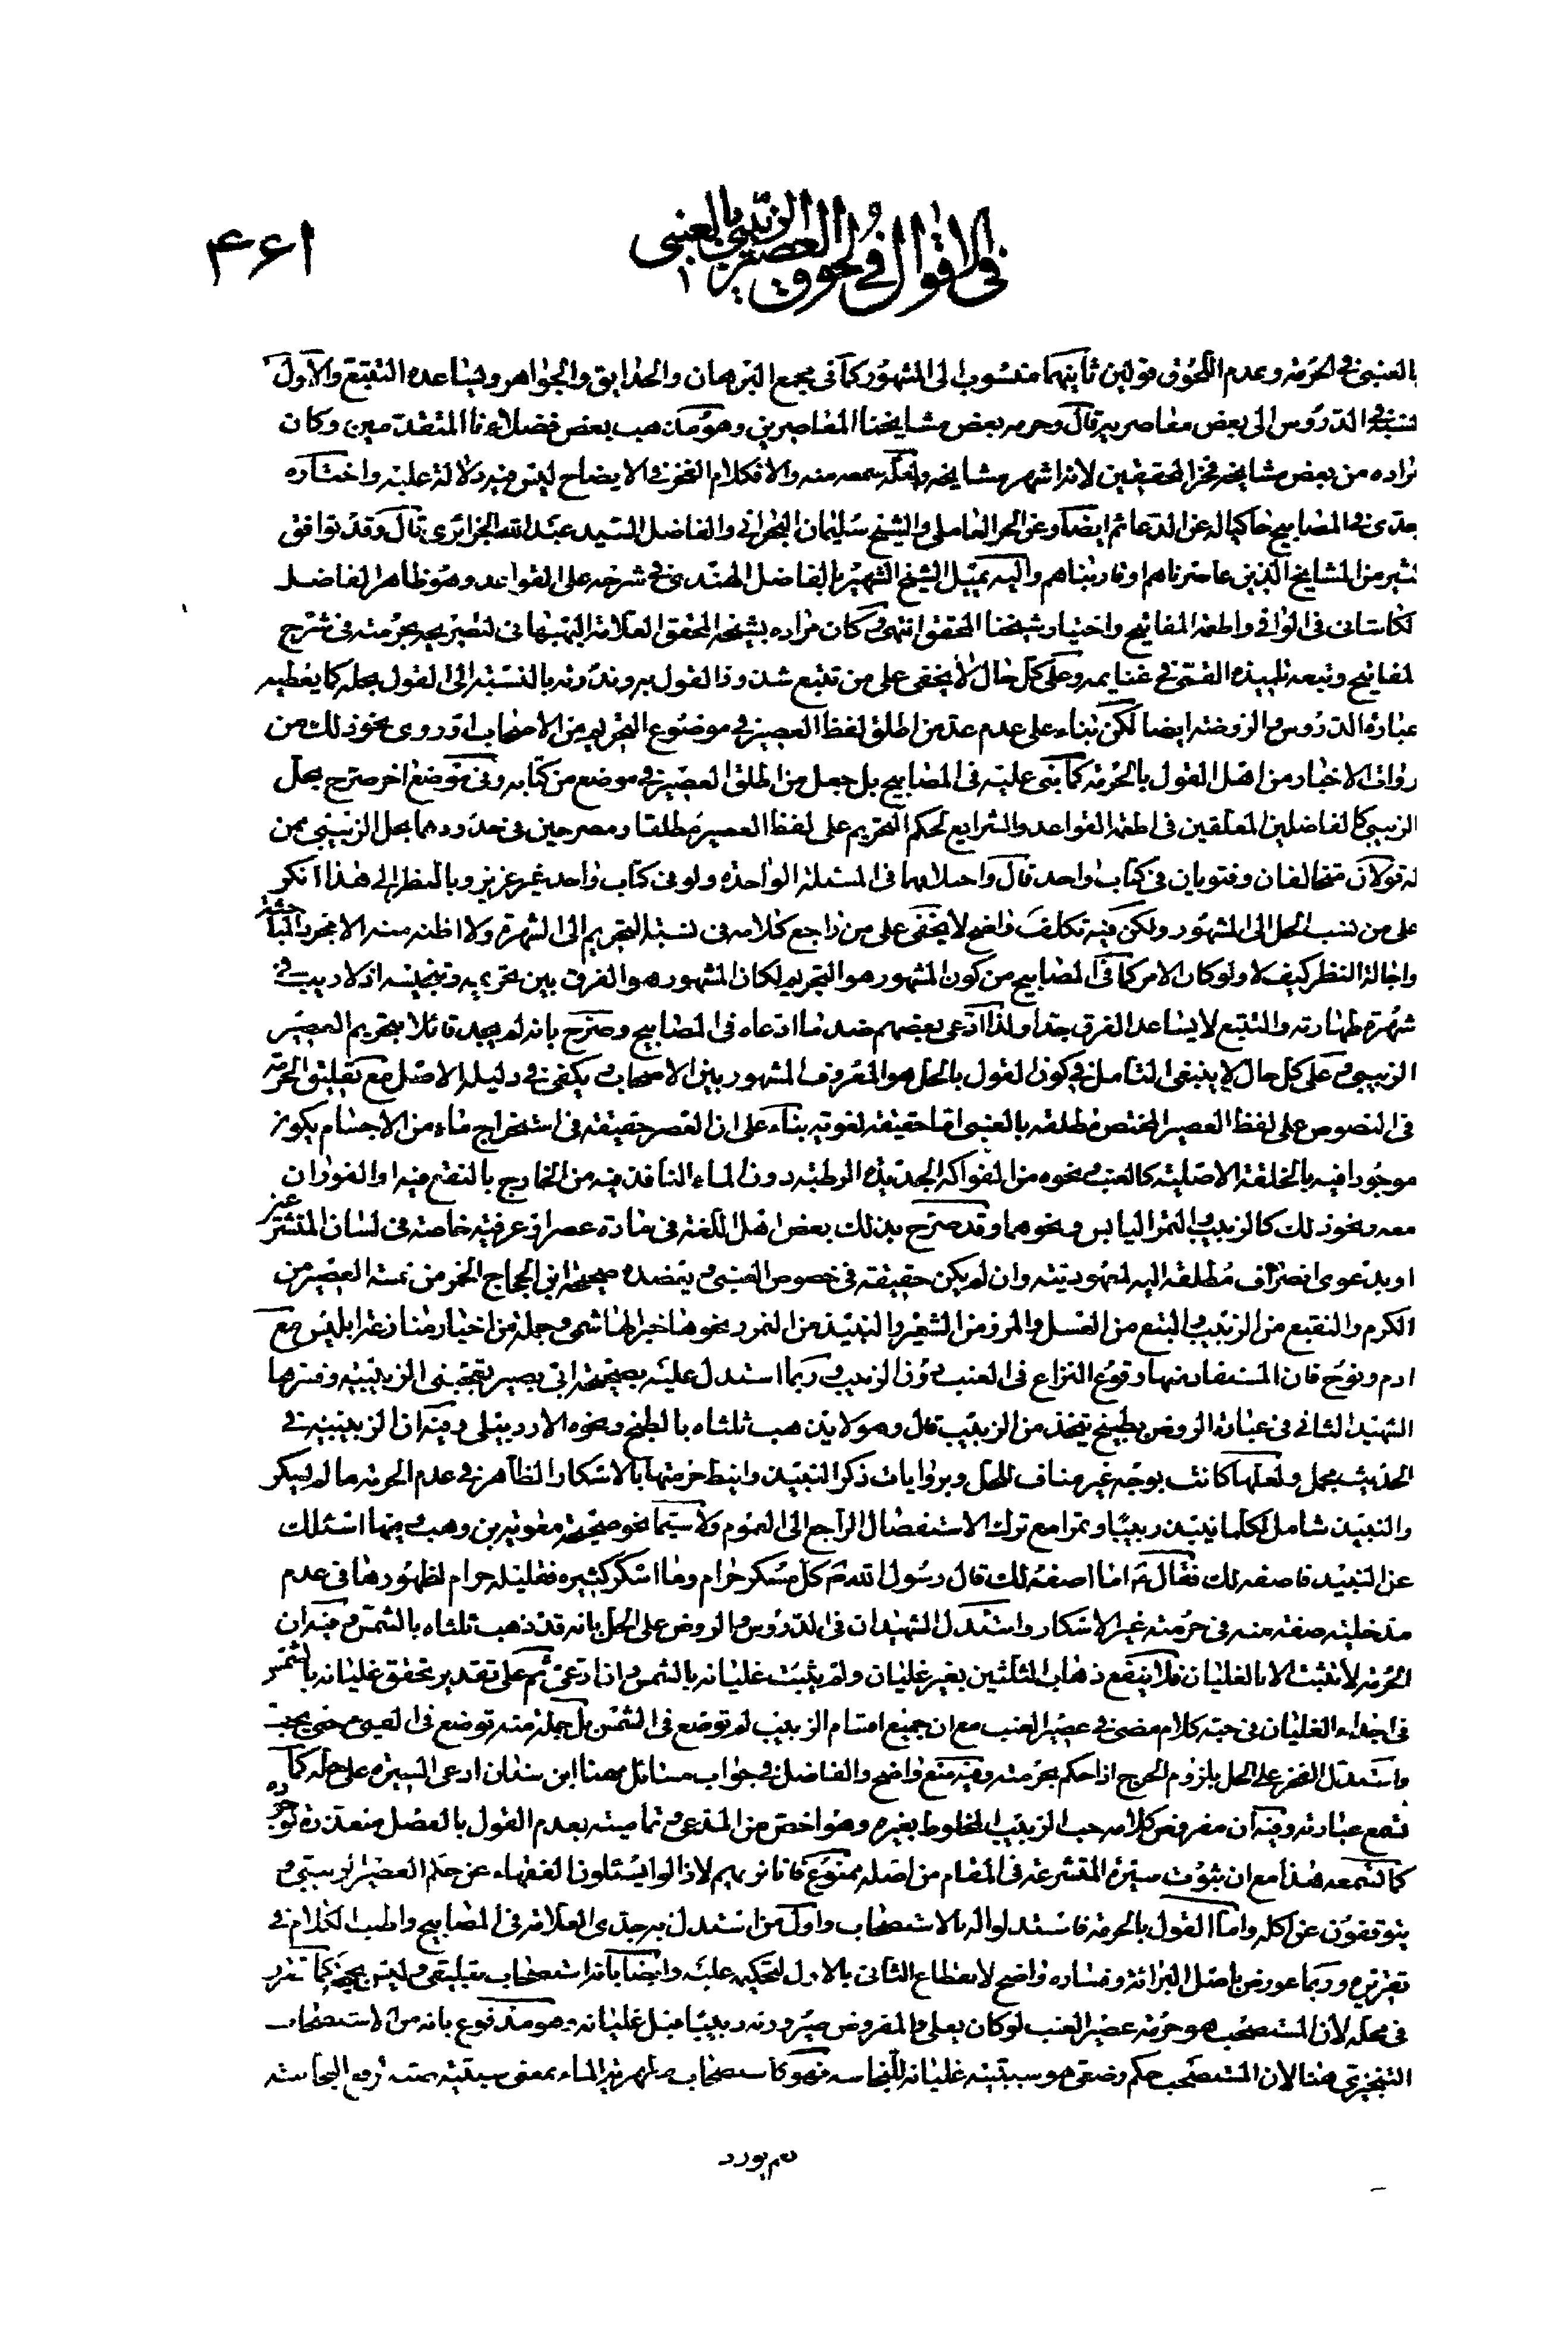 في الاقوال في لحوق العصير الزبيبي بالعنبي
۴۶۱
بالعنبي في الحرمة وعدم اللحوق قولين ثانيهما منسوب الى المشهور كما في مجمع البرهان والحدايق والجواهر ويساعده التتبع والاول
نسبه في الدروس الى بعض معاصريه قال وحرمه بعض مشايخنا المعاصرين وهو مذهب بعض فضلاءنا المتقدمين وكان
مراده من بعض مشايخه فخر المحققين لانه اشهر مشايخه ولعله سمعه منه والا فكلام الفخر في الايضاح ليس فيه دلالة عليه واختاره
جدى في المصابيح حاكيا له عن الدعائم ايضا وعن الحر العاملي والشيخ سليمان البحراني والفاضل السيد عبد الله الجزائري قال وقد توافق
كثير من المشايخ الذين عاصرناهم او قاربناهم واليه يميل الشيخ الشهير بالفاضل الهندى في شرحه على القواعد وهو ظاهر الفاضل
لكاساني في الوافي واطعمة المفاتيح واختيار شيخنا المحقق انتهى وكان مراده بشيخه المحقق العلامة البهبهاني لتصريحه بحرمته في شرح
المفاتيح وتبعه تلميذه القمي في غنايمه وعلى كل حال لا يخفى على من تتبع شذوذ القول به وندرته بالنسبة الى القول بحله كما يعطيه
عبارة الدروس والروضة ايضا لكن بناء على عدم عد من اطلق لفظ العصير في موضوع التحريم من الاصحاب او روى نحو ذلك من
رواة الاخبار من اهل القول بالحرمة كما بنى عليه في المصابيح بل جعل من اطلق العصير في موضع من كتابه وفي موضع اخر صرح بحل
الزبيبي كالفاضلين المعلقين في اطعمة القواعد والشرايع لحكم التحريم على لفظ العصير مطلقا ومصرحين في حدودهما بحل الزبيبي ممن
له قولان متخالفان وفتويان في كتاب واحد قال واختلافهما في المسئلة الواحدة ولو في كتاب واحد غير عزيز وبالنظر الى هذا انكر
على من نسب الحل الى المشهور ولكن فيه تكلف واضح لا يخفى على من راجع كلامه في نسبة التحريم الى الشهرة ولا اظنه منه الا مجرد المباحثة
واجالة النظر كيف لا ولو كان الامر كما في المصابيح من كون المشهور هو التحريم لكان المشهور هو الفرق بين تحريمه وتنجيسه اذ لا ريب في
شهرة طهارته والتتبع لا يساعد الفرق جدا ولذا ادعى بعضهم ضد ما ادعاه في المصابيح وصرح بانه لم يجد قائلا بتحريم العصير
الزبيبي وعلى كل حال لا ينبغي التامل في كون القول بالحل هو المعروف المشهور بين الاصحاب ويكفي في دليله الاصل مع تعليق الحرمة
في النصوص على لفظ العصير المختص مطلقه بالعنبي اما حقيقة لغوية بناء على ان العصر حقيقة في استخراج ماء من الاجسام يكون
موجودا فيه بالخلقة الاصلية كالعنب ونحوه من الفواكه الجديدة الرطبة دون الماء النافذ فيه من الخارج بالنقع فيه او الفوران
معه ونحو ذلك كالزبيب والتمر اليابس ونحوهما وقد صرح بذلك بعض اهل اللغة في مادة عصر او عرفية خاصة في لسان المتشرعين
او بدعوى انصراف مطلقه اليه لمعهوديته وان لم يكن حقيقة في خصوص العنبي ويعضده صحيحة ابن الحجاج الخمر من خمسة العصير من
الكرم والنقيع من الزبيب والبتع من العسل والمزر من الشعير والنبيذ من التمر ونحوها خبر الهاشمي وجملة من اخبار منازعة ابليس مع
ادم ونوح فان المستفاد منها وقوع النزاع في العنب دون الزبيب وربما استدل عليه بصحيحة ابي بصير تعجبني الزبيبية وفسرها
الشهيد الثاني في عبارة الروض بطبيخ يتخذ من الزبيب قال وهو لا يذهب ثلثاه بالطبخ ونحوه الاردبيلي وفيه ان الزبيبية في
الحديث مجمل ولعلها كانت بوجه غير مناف للحل وبروايات ذكر النبيذ وانيط حرمتها بالاسكار الظاهر في عدم الحرمة ما لم يسكر
والنبيذ شامل لكلما ينبذ زبيبا وتمرا مع ترك الاستفصال الراجع الى العموم ولا سيما نحو صحيحة معوية بن وهب وفيها اسئلك
عن النبيذ فاصفه لك فقال ع اما اصفه لك قال رسول الله ص كل مسكر حرام وما اسكر كثيره فقليله حرام لظهورها في عدم
مدخلية صفة منه في حرمته غير الاسكار واستدل الشهيدان في الدروس والروض على الحل بانه قد ذهب ثلثاه بالشمس وفيه ان
الحرمة لا تثبت الا بالغليان فلا ينفع ذهاب الثلثين بغير غليان ولم يثبت غليانه بالشمس وان ادعى ثم على تقدير تحقق غليانه بالشمس
في اجزاء الغليان في حبه كلام مضى في عصير العنب مع ان جميع اقسام الزبيب لم توضع في الشمس بل جملة منه توضع في
واستدل الفخر على الحل بلزوم الحرج اذا حكم بحرمته وفيه منع واضح والفاضل في جواب مسائل مهنا ابن سنان ادعى السيرة على حله كما
تسمع عبارته وفيه ان مفروض كلامه حب الزبيب المخلوط بغيره وهو اخص من المدعى وتماميته بعدم القول بالفصل متعذرة
كما لتسمعه هذا مع ان ثبوت سيرة المتشرعة في المقام من اصله ممنوع فانا نريهم لا زالوا يسئلون الفقهاء عن حكم العصير الزبيبي و
يتوقفون عن اكله واما القول بالحرمة فاستدلوا له بالاستصحاب واول من استدل به جدى العلامة في المصابيح واطيب الكلام في
تقريره وربما عورض باصل البرائة وفساده واضح لانقطاع الثاني بالاول لتحكيمه عليه وايضا بانه استصحاب تعليقي وليس بحجة كما تقرر
في محله لان المستصحب هو حرمة عصير العنب لو كان يغلي والمفروض صيرورته زبيبا قبل غليانه وهو مدفوع بانه من الاستصحاب
التنجيزى هنا لان المستصحب حكم وضعي هو سببية غليانه للنجاسة فهو كاستصحاب مطهرية الماء بمعنى سببيته رفع النجاسة